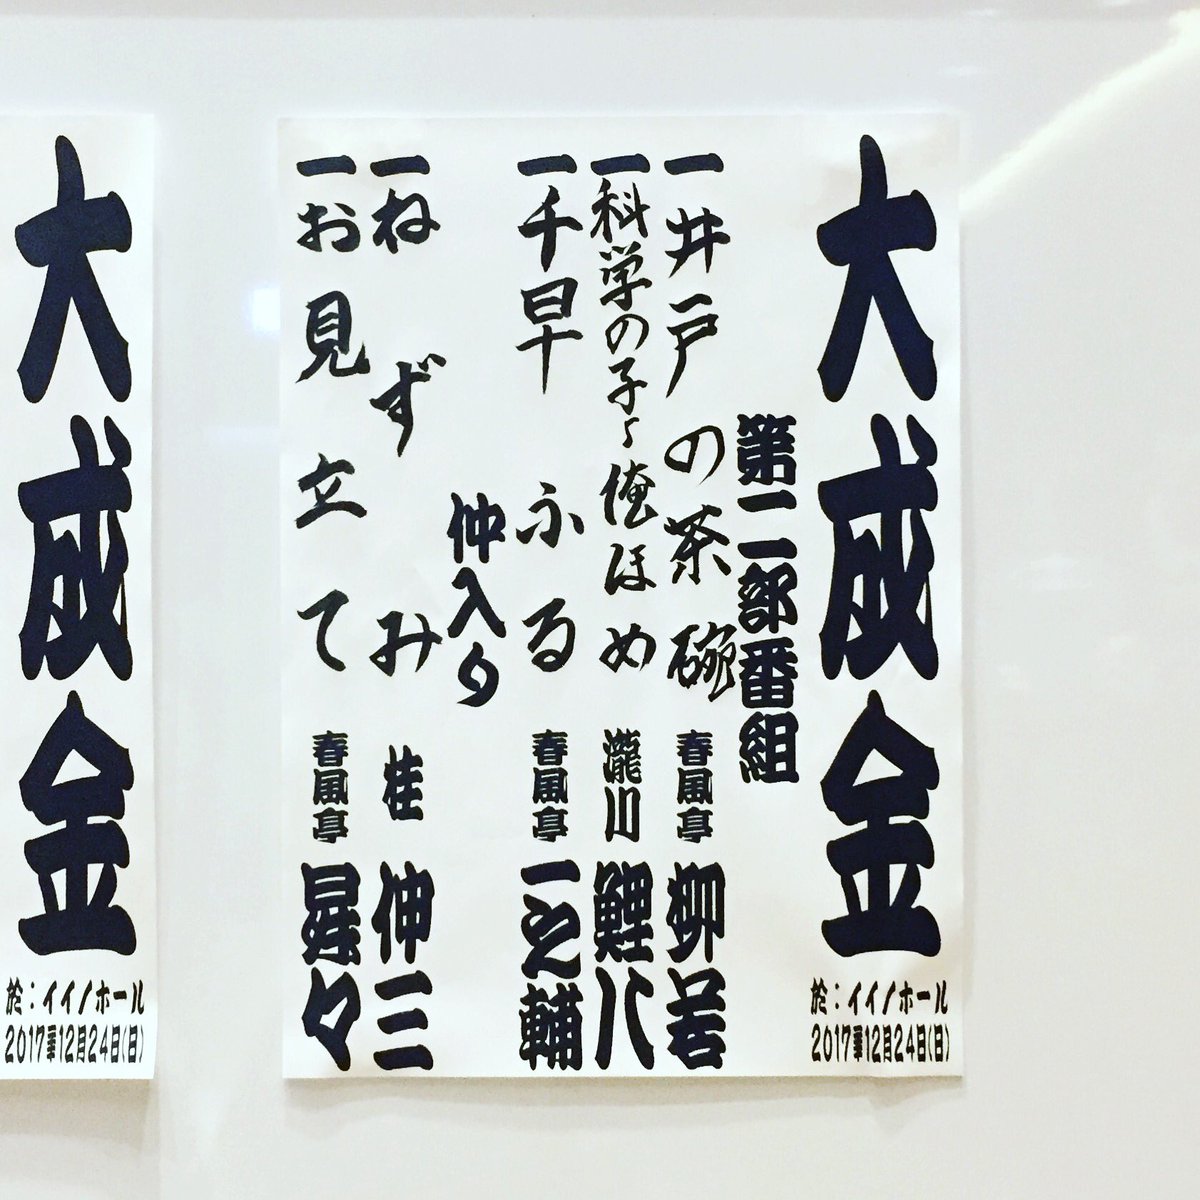 大成金
於：イイノホール
2017年12月24日(日)
第二部番組
一井戸の茶碗 春風亭 柳若
一科学の子〜俺ほめ 瀧川 鯉八
一千早ふる 春風亭 一之輔
仲入り
一ねずみ 桂 伸三
一お見立て 春風亭 昇々
大成金
於：イイノホール
2017年12月24日(日)